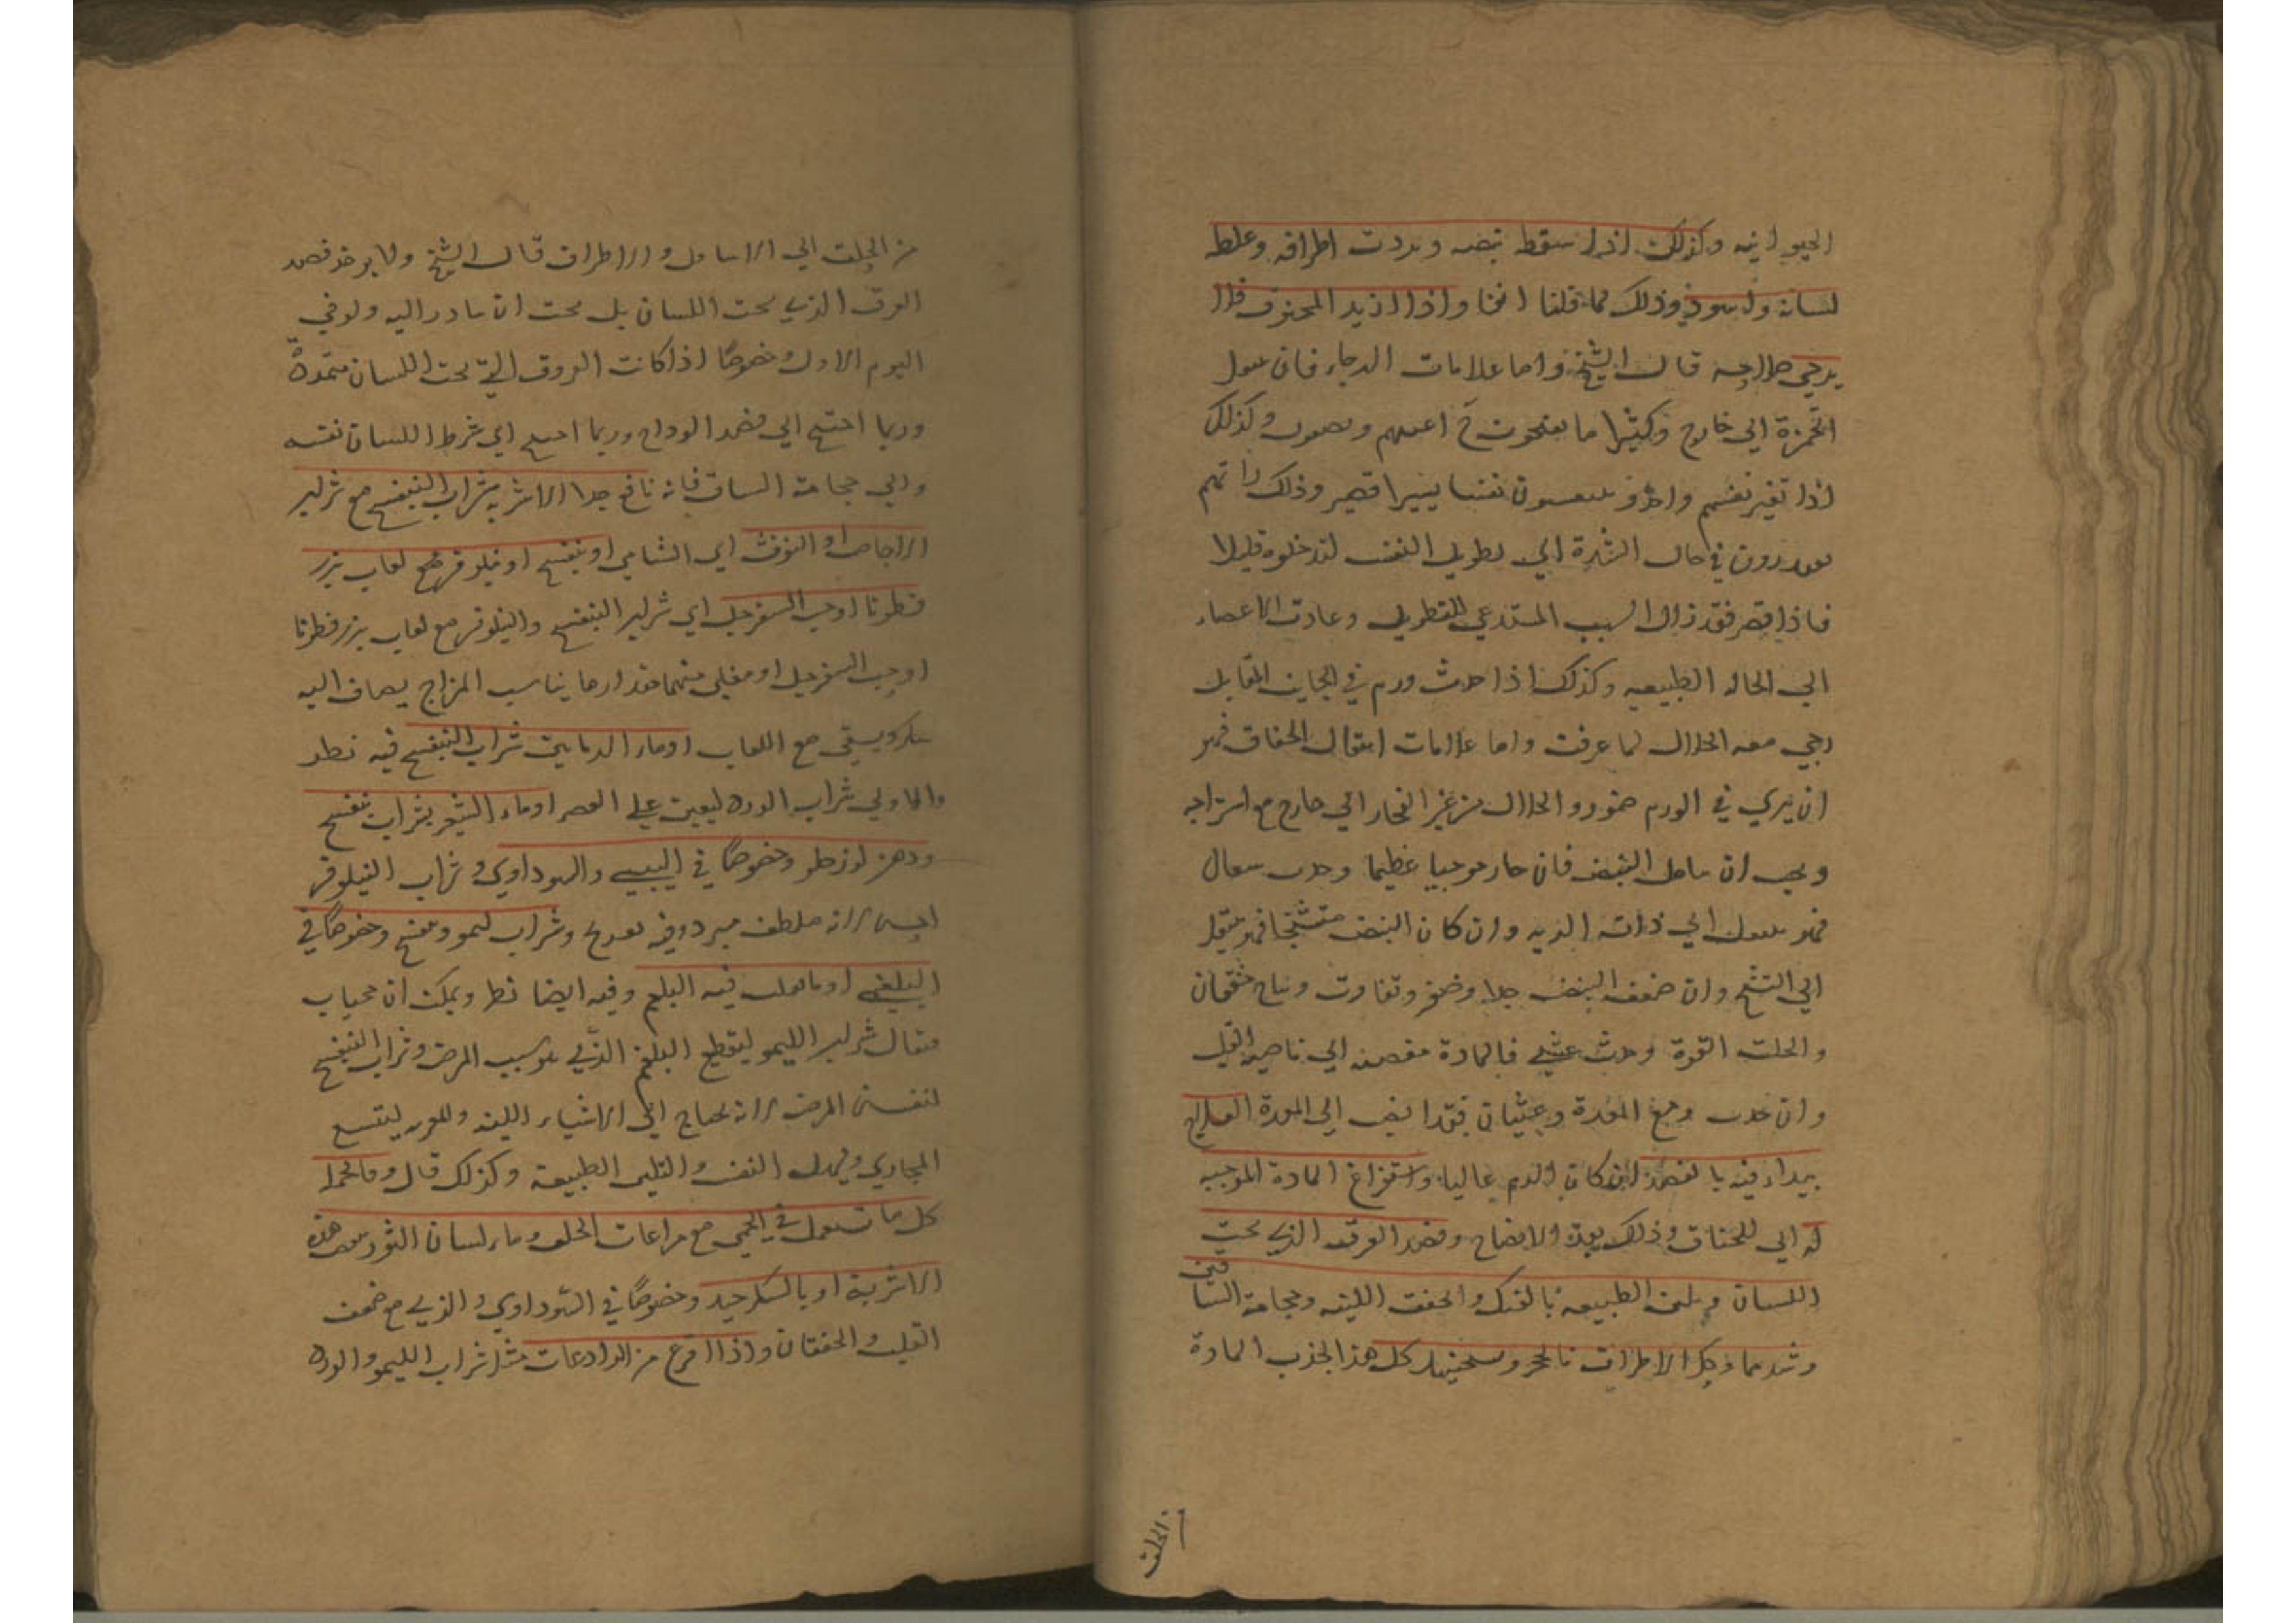 الحيوانيه وكذلك اذا سقط نبضه وبردت اطرافه وغلظ
لسانه واسود وذلك لما قلنا انفا واذا ازيد المخنوق فلا
يرجي صلاحه قال الشيخ واما علامات الرجاء فان
الحمرة الي خارج وكثيرا ما يفتحون وكذلك
اذا تغير نفسهم واخذوا يتنفسون نفسا يسيرا قصير وذلك لانهم
في حال الشدة الي تطويل النفس قليلا
فاذا قصر فقد زال السبب المستدعي للتطويل وعادت الاعضاء
الي الحاله الطبيعيه وكذلك اذا حدث ورم في الجانب المقابل
رجي معه الخلاص لما عرفت واما علامات انتقال الخناق فهو
ان يري في الورم ضمور والحلال من غير انفجار الي خارج مع استراحه
ويجب ان النبض فان صار موجيا عظيما وحدث سعال
فهو الي ذات الريه وان كان النبض متشنجا فهو ينتقل
الي التشنج وان ضعف النبض جدا وصغر وتفاوت وهاج خفقان
والحلت القوة وحدث غشي فالمادة الي ناحية القلب
وان حدث وجع المعدة وغثيان فقد انصب الي المعدة العلاج
يبداء فيه بالفصد ان كان الدم غالبا واستفراغ المادة الموجبه
له اي للخناق وذلك بعد الانضاج وفصد العرق الذي تحت
اللسان وتليين الطبيعه بالفتل والحقن اللينه وحجامة الساقين
وشدهما ودلك الاطراف كل هذا لجذب المادة
من الحلق
من الحلق الي الاسافل والاطراف قال الشيخ ولا يوخر فصد
العرق الذي تحت اللسان بل يجب ان يبادر اليه ولو في
اليوم الاول وخصوصا اذا كانت العروق التي تحت اللسان متمددة
وربما احتيج الي فصد الوداج وربما احتيج الي شرط اللسان نفسه
والي حجامة الساق فانه نافع جدا الاشربه شراب البنفسج مع شراب
الاجاص او التوت اي الشامي او بنفسج او نيلوفر مع لعاب بزر
قطونا او حب السفرجل اي شراب البنفسج والنيلوفر مع لعاب بزر قطونا
او حب السفرجل او مغلي منهما مقدار ما يناسب المزاج يضاف اليه
سكر ويسقي مع اللعاب او ماء الرمانين شراب البنفسج فيه نظر
والاولي شراب الورد ليعين علي العصر او ماء الشعير بشراب بنفسج
ودهن لوز حلو وخصوصا في اليبسي والسوداوي وشراب النيلوفر
لانه ملطف مبرد وفيه وشراب ليمو وبنفسج وخصوصا في
البلغمي او ما فيه البلغم وفيه ايضا نظر ويمكن ان يجاب
فقال شراب الليمو لتقطيع البلغم الذي هو سبب المرض وشراب البنفسج
لنفس المرض لانه يحتاج الي الاشياء اللينه ليتسع
المجاري ويسهل النفس والتليين الطبيعة وكذلك قال وبالجملة
كل ما يستعمل في الحمي مع مراعات الحلق وماء لسان الثور هذه
الاشربة او بالسكر جيد وخصوصا في السوداوي والذي مع ضعف
القلب والخفقان واذا فرغ من الرادعات مثل شراب الليمو والورد